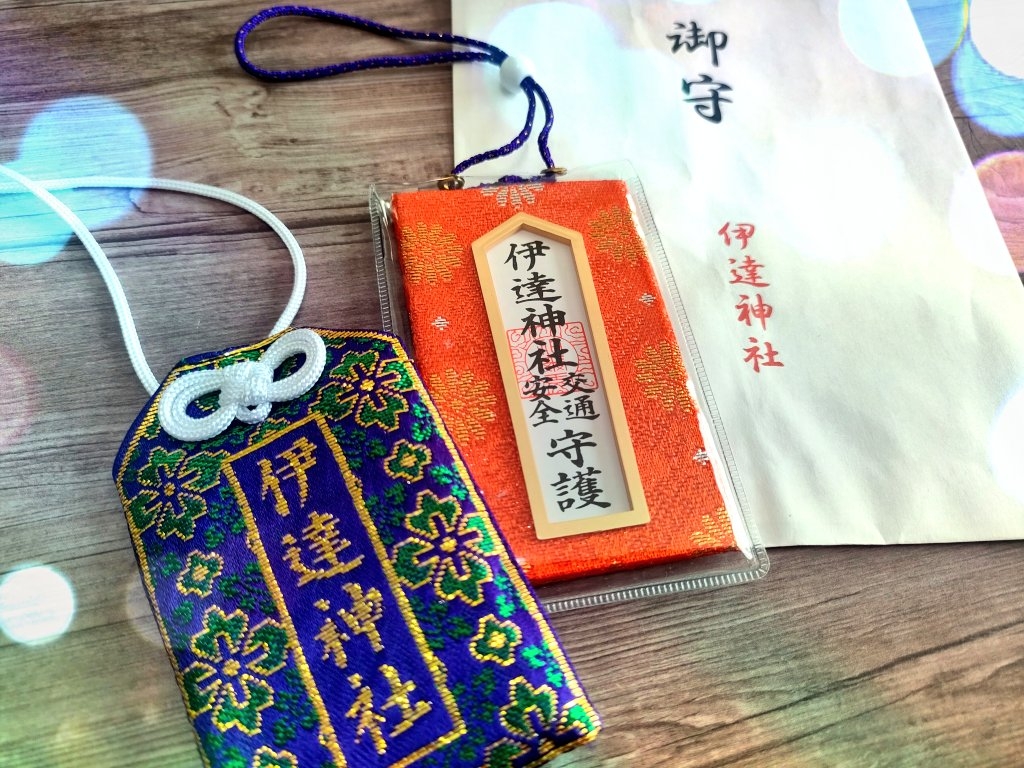 御守
伊達神社
伊達神社
交通
安全
守護
伊達神社